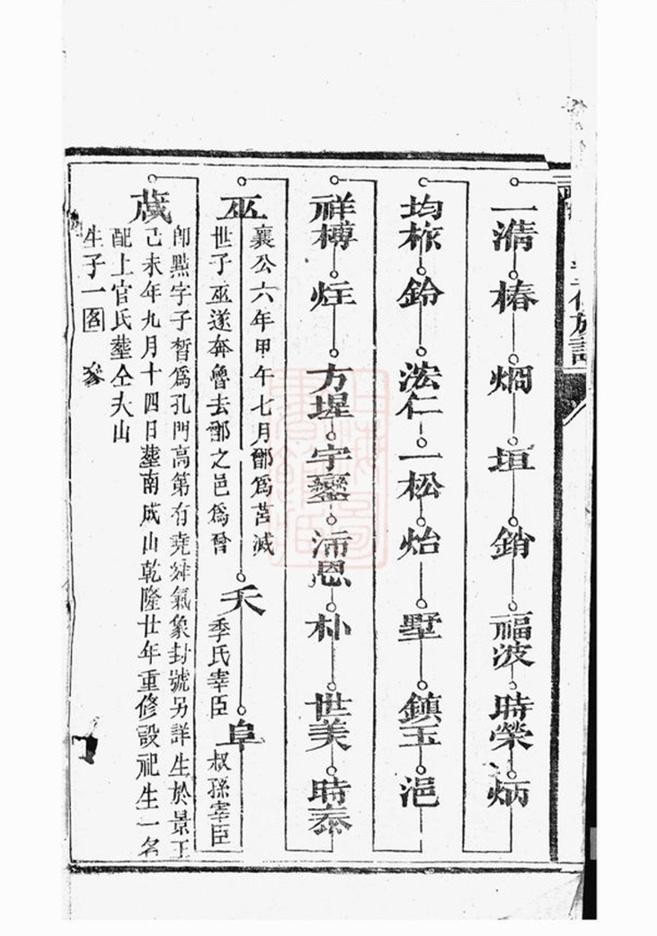 一濟 椿 烱 垣 銷 福波 時榮 炳
均旅 鈴 浤仁 一松 炲 墅 鎮玉 浥
祥槫 炷 方墀 宇鑾 沛恩 朴 世美 時泰
巫
襄公六年甲午七月鄫爲莒滅
世子巫遂奔魯去鄫之邑爲曾
夭
季氏宰臣
阜
叔孫宰臣
蒧
卽點字子晳爲孔門高第有堯舜氣象封號另詳生於景王
己未年九月十四日塟南成山乾隆廿年重修設祀生一名
配上官氏塟仝夫山
生子一名 參